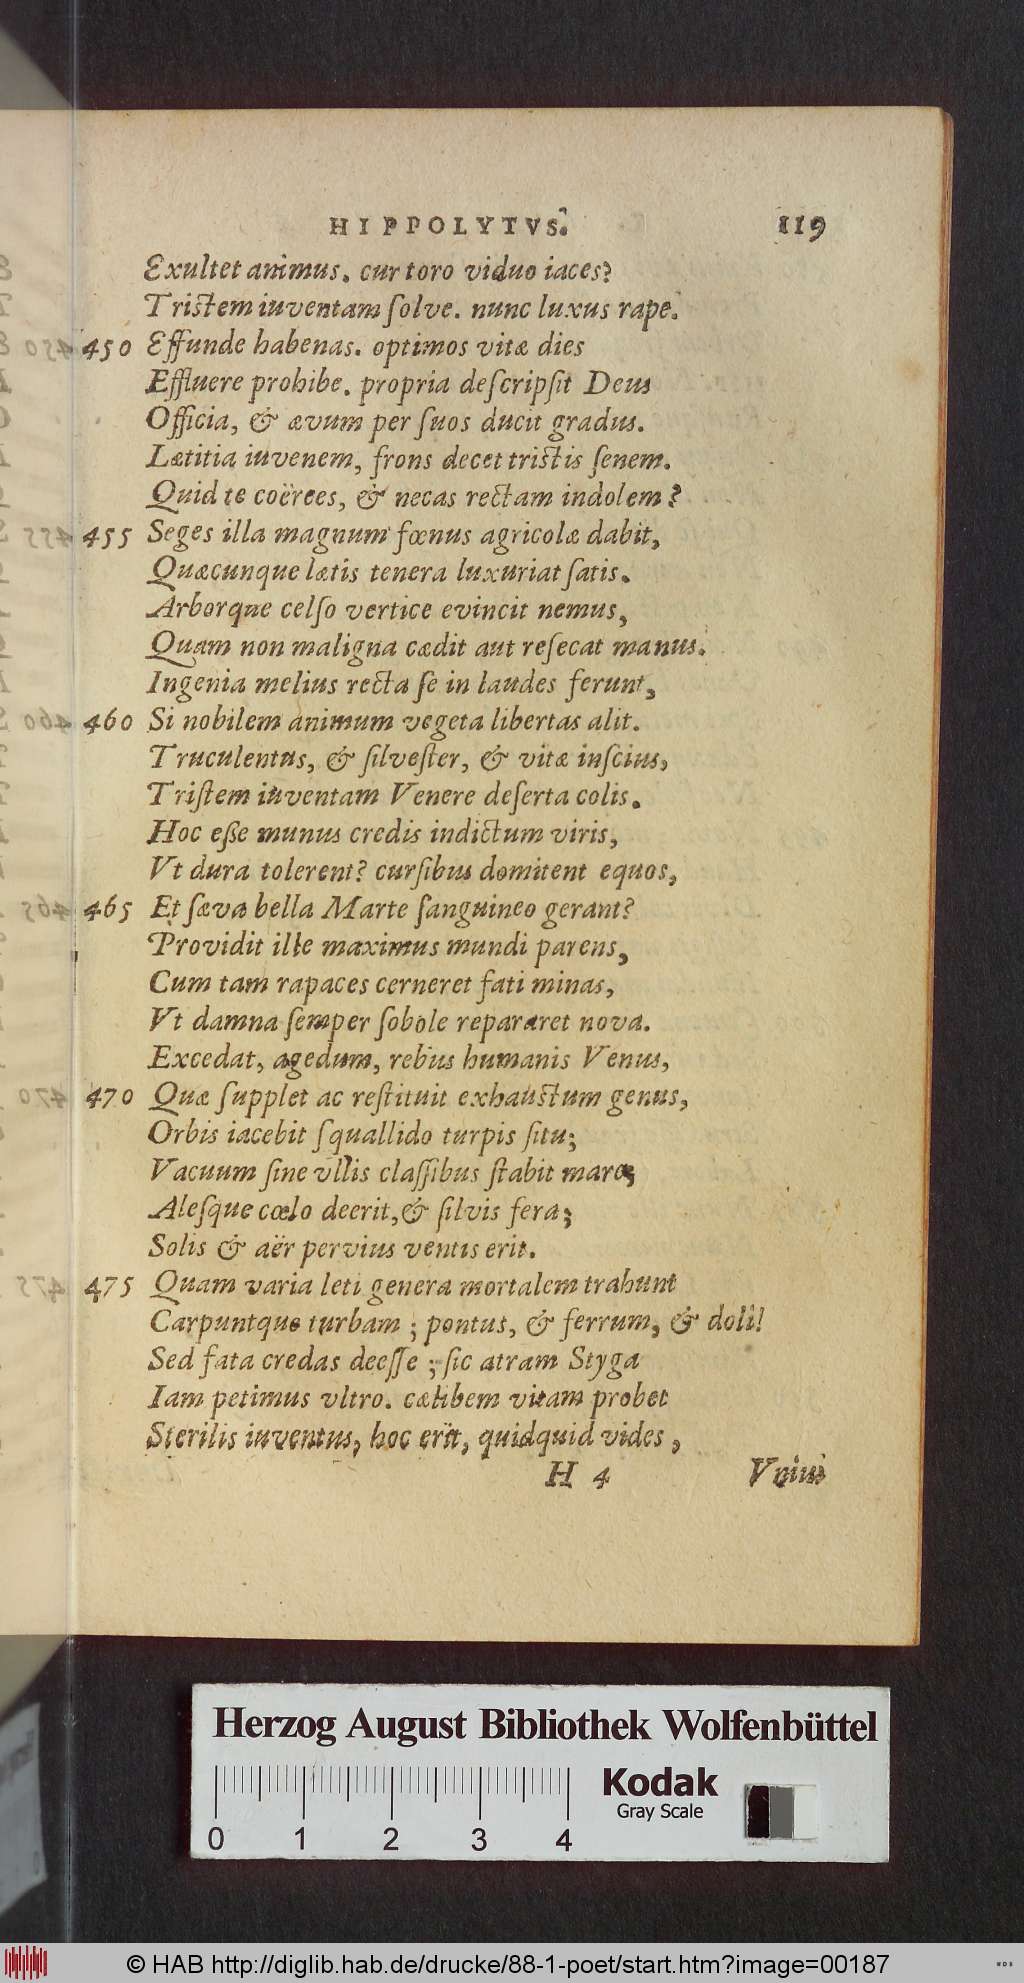 HIPPOLYTVS. 119
Exultet animus. cur toro viduo iaces?
Tristem iuventam ſolve. nunc luxus rape.
450 Effunde habenas. optimos vitæ dies
Effluere prohibe. propria deſcripſit Deus
Officia, & ævum per ſuos ducit gradus.
Lætitia iuvenem, frons decet tristis ſenem.
Quid te coërces, & necas rectam indolem?
455 Seges illa magnum fœnus agricolæ dabit,
Quæcunque lætis tenera luxuriat ſatis.
Arborque celſo vertice evincit nemus,
Quam non maligna cædit aut reſecat manus.
Ingenia melius recta ſe in laudes ferunt,
460 Si nobilem animum vegeta libertas alit.
Truculentus, & ſilveſter, & vitæ inſcius,
Triſtem iuventam Venere deſerta colis.
Hoc eſſe munus credis indictum viris,
Vt dura tolerent? curſibus domitent equos,
465 Et ſæva bella Marte ſanguineo gerant?
Providit ille maximus mundi parens,
Cum tam rapaces cerneret fati minas,
Vt damna ſemper ſobole repararet nova.
Excedat, agedum, rebus humanis Venus,
470 Quæ ſupplet ac reſtituit exhaustum genus,
Orbis iacebit ſquallido turpis ſitu;
Vacuum ſine vllis claſſibus ſtabit mare;
Aleſque cœlo deerit, & ſilvis fera;
Solis & aër pervius ventis erit.
475 Quam varia leti genera mortalem trahunt
Carpuntque turbam ; pontus, & ferrum, & doli!
Sed fata credas deeſſe ; ſic atram Styga
Iam petimus vltro. cælibem vitam probet
Sterilis iuventus, hoc erit, quidquid vides ,
H 4 Vnius
Herzog August Bibliothek Wolfenbüttel
Kodak
Gray Scale
0 1 2 3 4
© HAB http://diglib.hab.de/drucke/88-1-poet/start.htm?image=00187